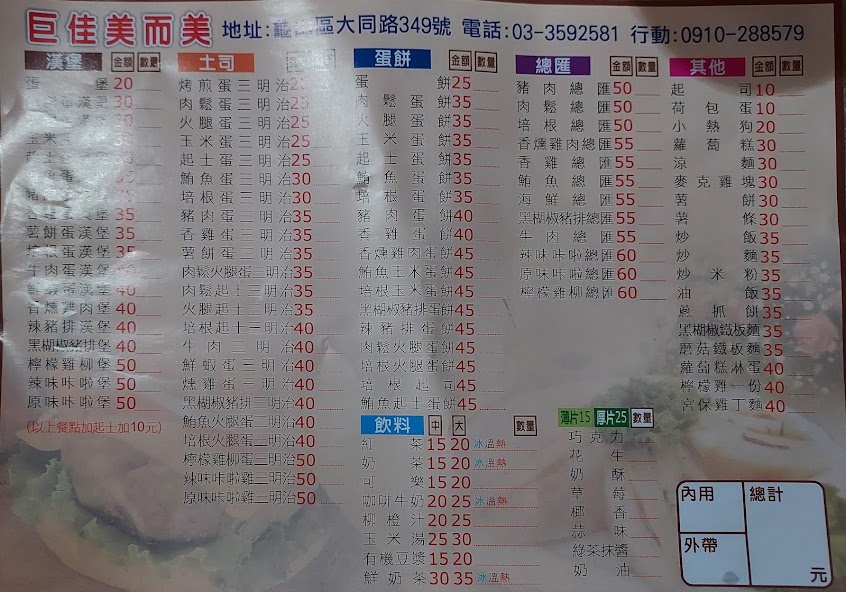 巨佳美而美 地址:龜山區大同路349號 電話:03-3592581 行動:0910-288579
漢堡 金額 數量
蛋堡20
蛋漢堡30
玉米
薯餅蛋漢堡35
培根蛋漢堡
牛肉蛋漢堡
香燻雞肉堡40
辣豬排漢堡40
黑胡椒豬排堡40
檸檬雞柳堡50
辣味咔啦堡50
原味咔啦堡50
(以上餐點加起士加10元)
土司 金額 數量
烤煎蛋三明治25
肉鬆蛋三明治25
火腿蛋三明治25
玉米蛋三明治25
起士蛋三明治25
鮪魚蛋三明治30
培根蛋三明治30
豬肉蛋三明治35
香雞蛋三明治35
薯餅蛋三明治35
肉鬆火腿蛋三明治35
肉鬆起士三明治35
火腿起士三明治35
培根起士三明治40
牛肉三明治40
鮮蝦蛋三明治40
燻雞蛋三明治40
黑胡椒豬排三明治40
鮪魚火腿蛋三明治40
培根火腿蛋三明治40
檸檬雞柳蛋三明治50
辣味咔啦雞三明治50
原味咔啦雞三明治50
蛋餅 金額 數量
蛋餅25
肉鬆蛋餅35
火腿蛋餅35
玉米蛋餅35
起士蛋餅35
鮪魚蛋餅35
培根蛋餅35
豬肉蛋餅40
香雞蛋餅40
香燻雞肉蛋餅45
鮪魚玉米蛋餅45
培根玉米蛋餅45
黑胡椒豬排蛋餅45
辣豬排蛋餅45
肉鬆火腿蛋餅45
培根火腿蛋餅45
培根起司45
鮪魚起士蛋餅45
飲料 中 大 數量
紅茶15 20 冰溫熱
奶茶15 20 冰溫熱
可樂15 20
咖啡牛奶20 25 冰溫熱
柳橙汁20 25
玉米湯25 30
有機豆漿15 20
鮮奶茶30 35 冰溫熱
總匯 金額 數量
豬肉總匯50
肉鬆總匯50
培根總匯50
香燻雞肉總匯55
香雞總匯55
鮪魚總匯55
海鮮總匯55
黑胡椒豬排總匯55
牛肉總匯55
辣味咔啦總匯60
原味咔啦總匯60
檸檬雞柳總匯60
薄片15 厚片25 數量
巧克力
花生
奶酥
草莓
椰香
蒜味
綠茶抹醬
奶油
其他 金額 數量
起司10
荷包蛋10
小熱狗20
蘿蔔糕30
涼麵30
麥克雞塊30
薯餅30
薯條30
炒飯35
炒麵35
炒米粉35
油飯35
蔥抓餅35
黑胡椒鐵板麵35
蘑菇鐵板麵35
蘿蔔糕淋蛋40
檸檬雞一份40
宮保雞丁麵40
內用 總計
外帶 元